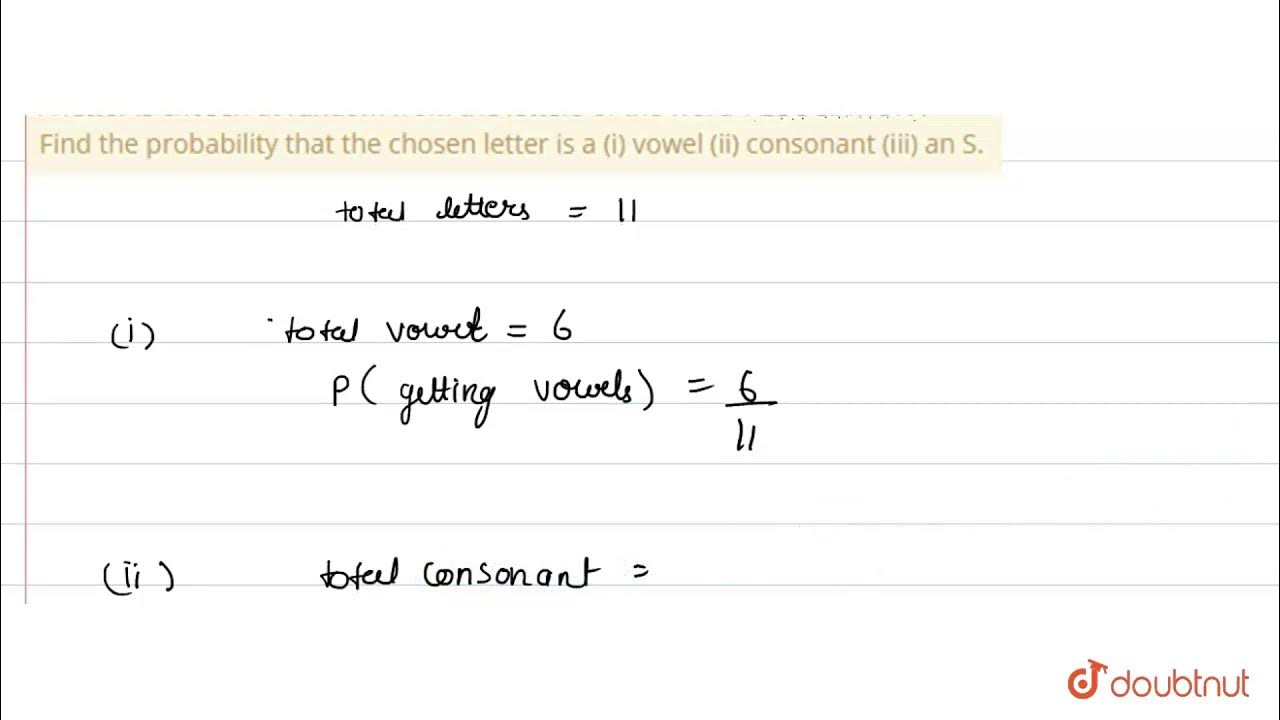 Find the probability that the chosen letter is a (i) vowel (ii) consonant (iii) an S.
total letters = 11
(i) total vowel = 6
P( getting vowels) = 6
11
(ii) total consonant =
doubtnut